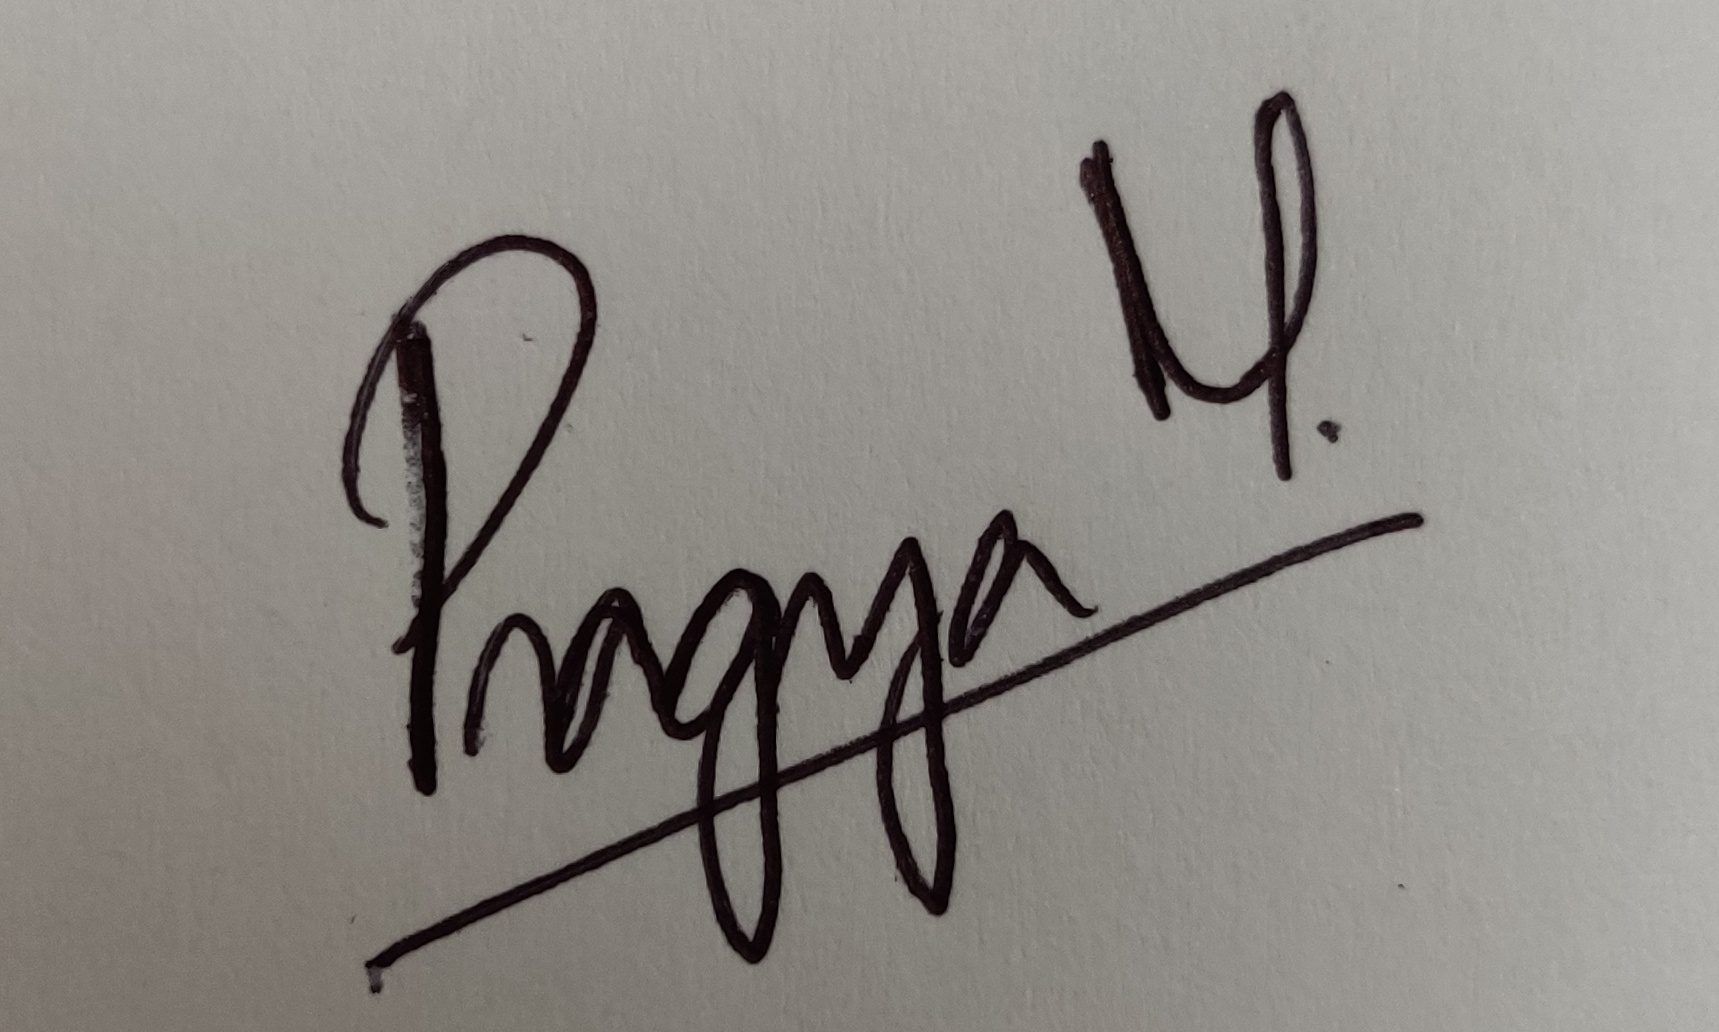 Pragya M.